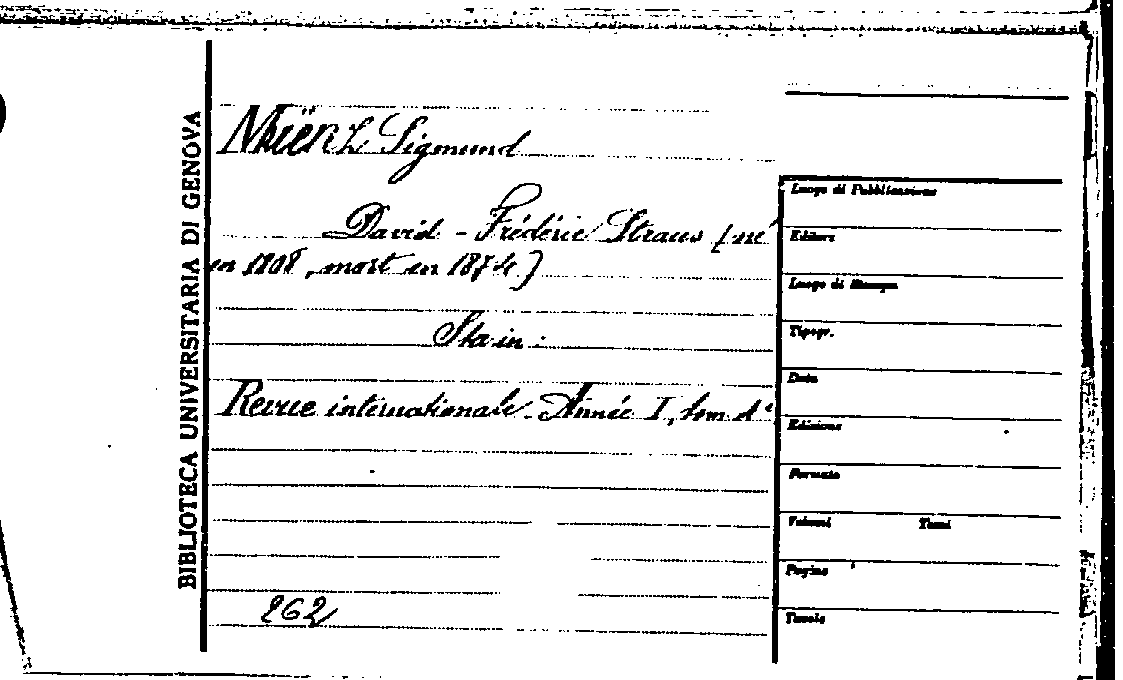 BIBLIOTECA UNIVERSITARIA DI GENOVA
Müenz Sigmund
David - Frédéric Straus (né
en 1808, mort en 1874)
Sta in:
Revue internationale. Année I, tom 1º
262
Luogo di Pubblicazione
Editore
Luogo di Stampa
Tipogr.
Data
Edizione
Formato
Volumi Tomi
Pagine
Tavole